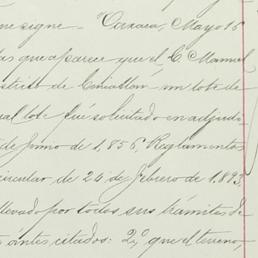 me signe - "Oaxaca, Mayo 15
que aparece que el C. Manuel
de Cuicatlán un lote de
cual lote fué solicitado en adjudi-
de Junio de 1,856, Reglamentos
circular de 26 de febrero de 1,893,
llevado por todos sus trámites de
antes citados: 2,º que el terreno,